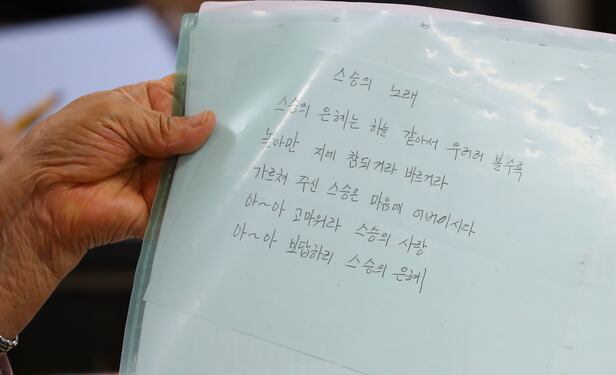 스승의 노래
스승의 은혜는 하늘 같아서 우러러 볼수록
높아만 지네 참되거라 바르거라
가르쳐 주신 스승은 마음에 어버이시다
아~아 고마워라 스승의 사랑
아~아 보답하리 스승의 은혜